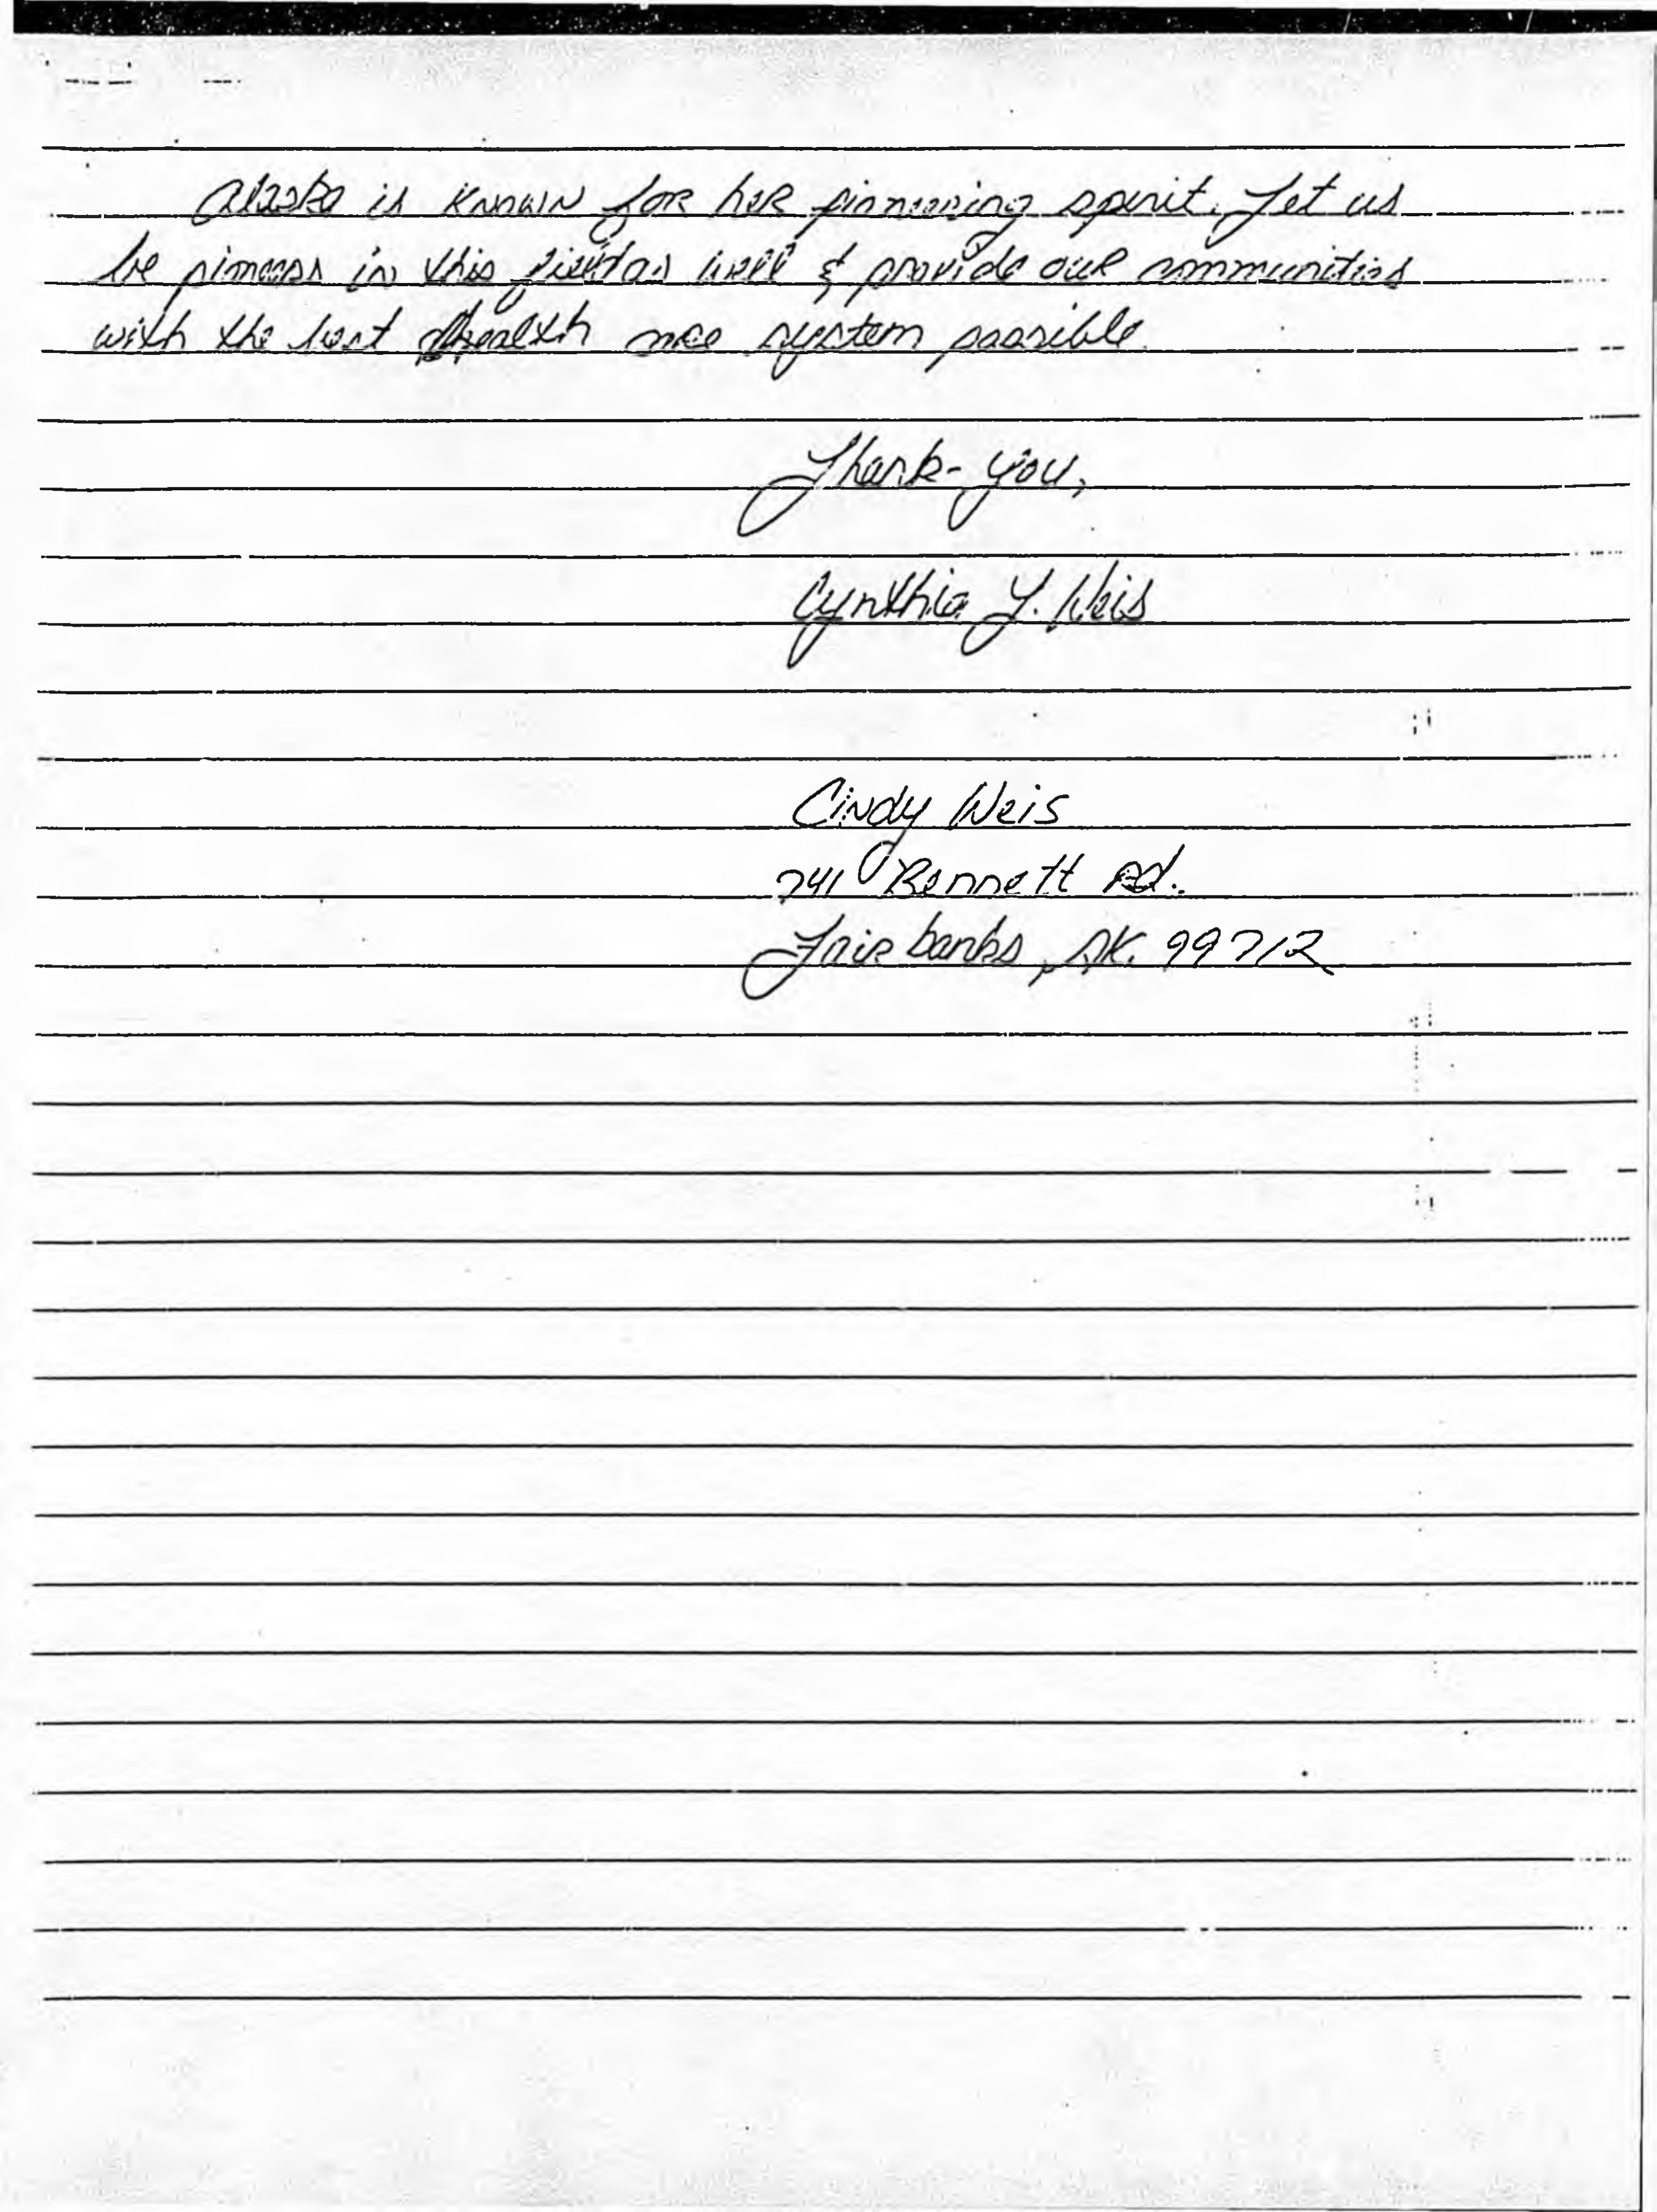 Alaska is known for her pioneering spirit. Let us
be pioneers in this field as well & provide our communities
with the best health care system possible.
Thank-you,
Cynthia Y. Weis
Cindy Weis
741 Bennett Rd.
Fairbanks, AK. 99712